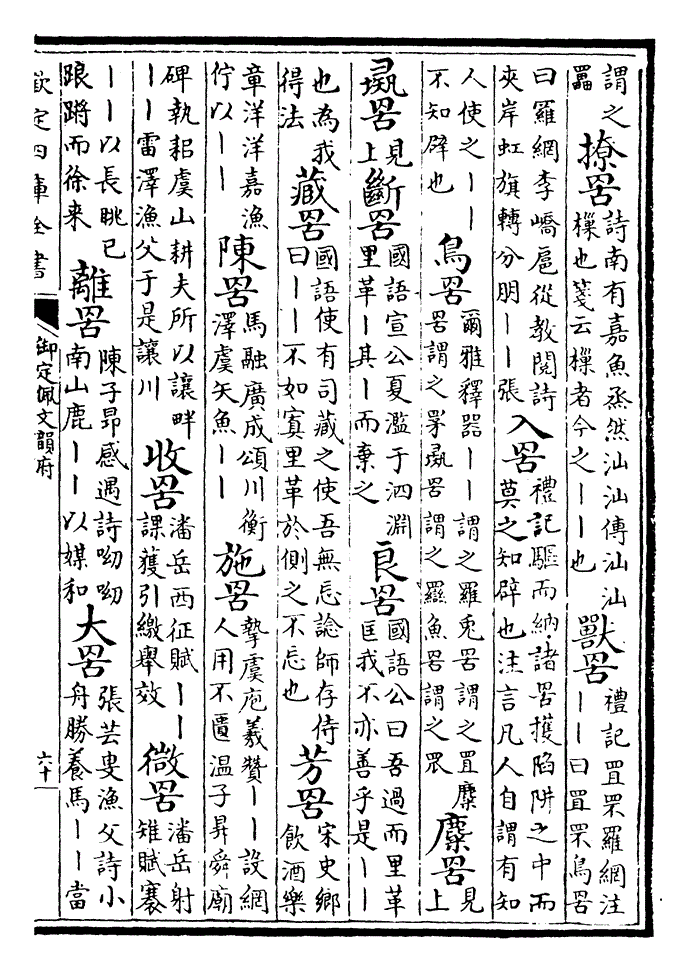 謂之
撩罟
詩南有嘉魚烝然汕汕傳汕汕
樔也箋云樔者今之丨丨也
獸罟
禮記罝罘羅網注
丨丨曰罝罘鳥罟
曰羅網李嶠扈從教閱詩
夾岸虹旗轉分朋丨丨張
入罟
禮記驅而納諸罟擭陷阱之中而
莫之知辟也注言凡人自謂有知
人使之丨丨
不知辟也
鳥罟
爾雅釋器丨丨謂之羅兔罟謂之罝麋
罟謂之罞彘罟謂之羉魚罟謂之罛
麋罟
見
上
彘罟
見
上
斷罟
國語宣公夏濫于泗淵
里革丨其丨而棄之
良罟
國語公曰吾過而里革
匡我不亦善乎是丨丨
也為我
得法
藏罟
國語使有司藏之使吾無忘諗師存侍
曰丨丨不如寘里革於側之不忘也
芳罟
宋史鄉
飲酒樂
章洋洋嘉漁
佇以丨丨
陳罟
馬融廣成頌川衡
澤虞矢魚丨丨
施罟
摯虞庖羲贊丨丨設網
人用不匱温子昇舜廟
碑執耜虞山耕夫所以讓畔
丨丨雷澤漁父于是讓川
收罟
潘岳西征賦丨丨
課獲引繳舉效
微罟
潘岳射
雉賦褰
丨丨以長眺已
踉蹡而徐来
離罟
陳子昂感遇詩呦呦
南山鹿丨丨以媒和
大罟
張芸叟漁父詩小
舟勝養馬丨丨當
欽定四庫全書
御定佩文韻府
六十